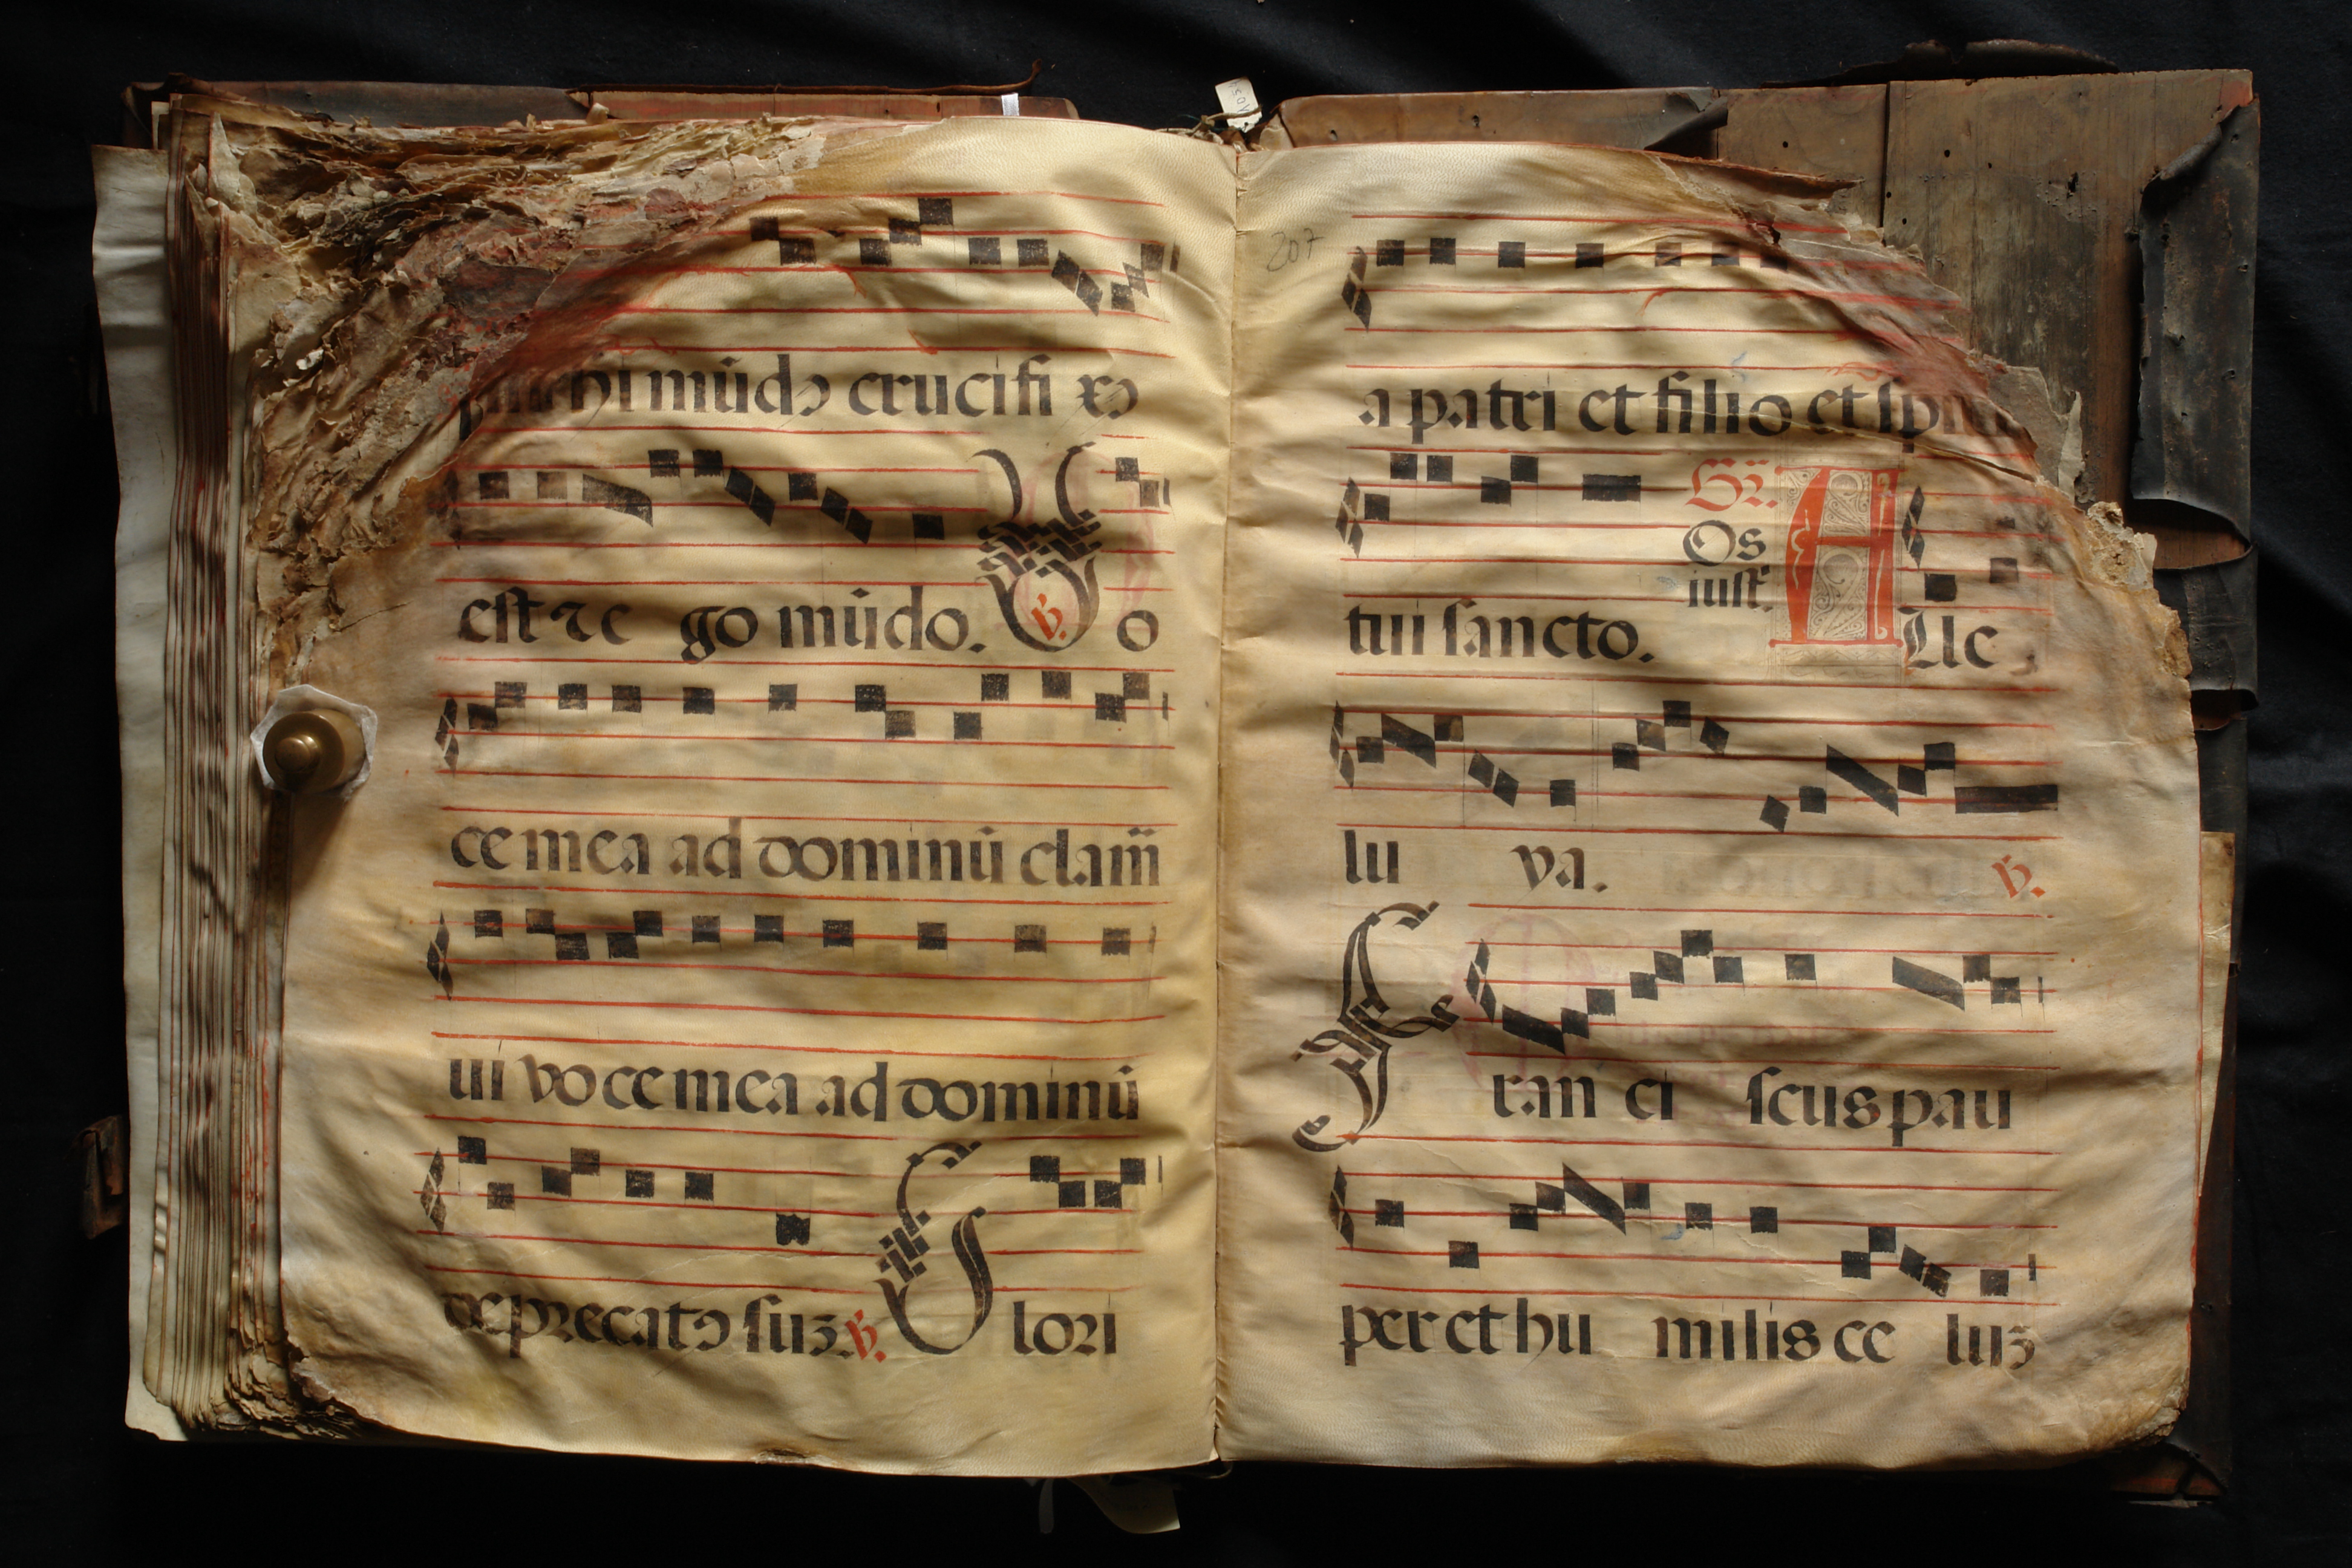 mihi mūdo crucifi xo
est et e go mūdo. ℣. Vo
ce mea ad dominū clam̄
ui voce mea ad dominū
deprecatꝰ suʒ ℣. Glori
207
a patri et filio et spiri
Gr̄.
Os
iust.
tui sancto. Alle
lu ya. ℣.
Fran ci scus pau
per et hu milis ce luʒ